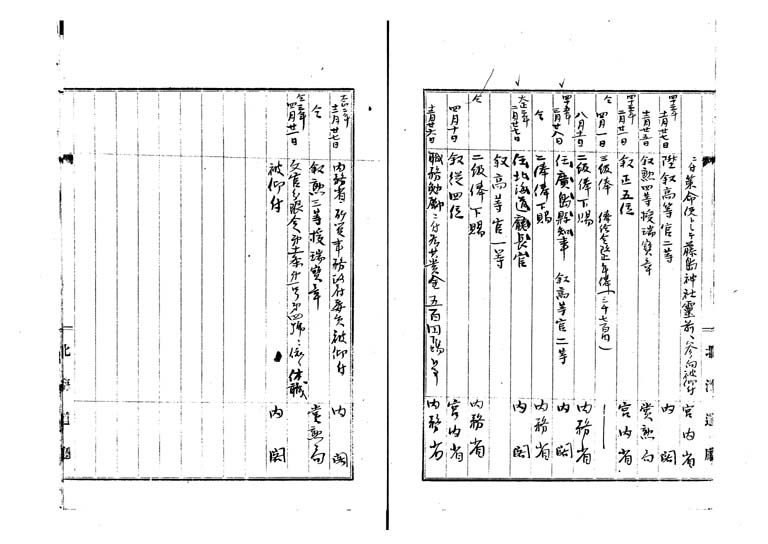 ニ付策命使トシテ藤島神社靈前ヘ参向被仰付 宮内省
十二月廿七日 陞叙高等官二等 内閣
十二月廿五日 叙勲四等授瑞寶章 賞勲局
四十四年 二月廿一日 叙正五位 宮内省
仝 四月一日 三級俸 俸給令改正年俸(三千七百円)
八月十一日 二級俸下賜 内務省
四十五年 三月廿八日 任廣島縣知事 叙高等官二等 内閣
仝 俸下賜 内務省
大正二年 二月廿七日 任北海道廳長官 内閣
叙高等官一等
仝 二級俸下賜 内務省
四月十日 叙從四位 宮内省
十二月廿六日 職務勉励ニ付 賞金五百円下賜 内務省
北海道廳
大正二年 十二月廿七日 内務省所管事務政府委員被仰付 内閣
仝 叙勲三等授瑞寶章 賞勲局
仝三年 四月廿一日 文官分限令第十一条第一項第四号ニ依リ休職
被仰付 内閣
北海道廳